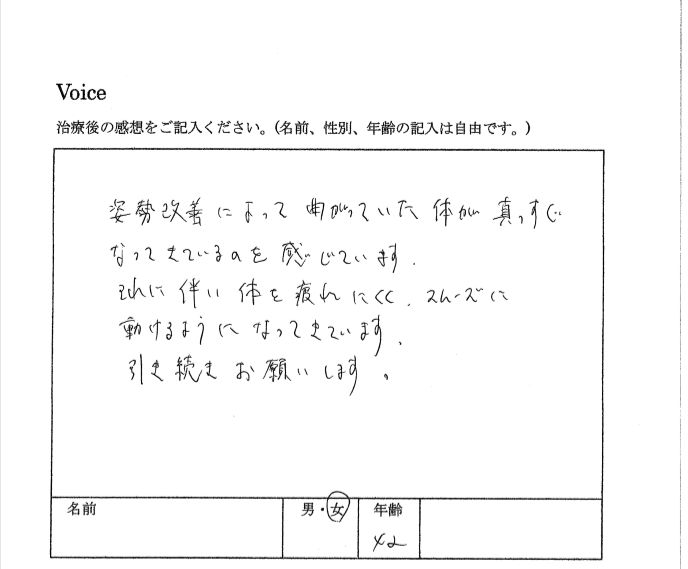 Voice
治療後の感想をご記入ください。(名前、性別、年齢の記入は自由です。)
姿勢改善によって曲がっていた体が真っすぐ
なってきているのを感じています.
それに伴い体を疲れにくく.スムーズに
動けるようになってきています.
引き続きお願いします。
名前 男・女 年齢
42